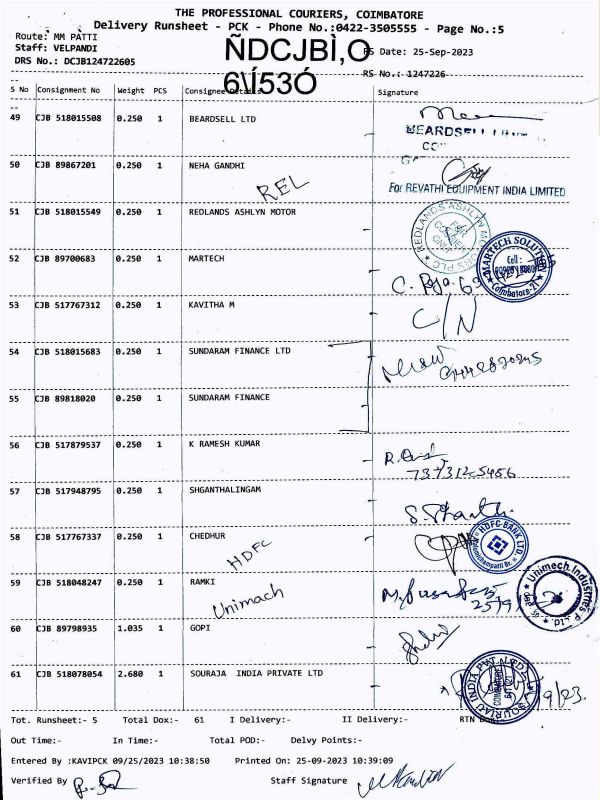 THE PROFESSIONAL COURIERS, COIMBATORE
Delivery Runsheet - PCK - Phone No.:0422-3505555 - Page No.:5
Route: MM PATTI
Staff: VELPANDI ÑDCJBÌ,O Date: 25-Sep-2023
DRS No.: DCJB124722605 6\Í53Ó RS No.: 1247226
S No Consignment No Weight PCS Consignee Details Signature
49 CJB 518015508 0.250 1 BEARDSELL LTD
BEARDSELL
50 CJB 89867201 0.250 1 NEHA GANDHI
REL
For REVATHI EQUIPMENT INDIA LIMITED
51 CJB 518015549 0.250 1 REDLANDS ASHLYN MOTOR
REDLANDS ASHLYN MOTORS PLC
52 CJB 89700683 0.250 1 MARTECH
MARTECH SOLUTION
Cell :
Coimbatore-21
53 CJB 517767312 0.250 1 KAVITHA M
C/N
54 CJB 518015683 0.250 1 SUNDARAM FINANCE LTD
55 CJB 89818020 0.250 1 SUNDARAM FINANCE
56 CJB 517879537 0.250 1 K RAMESH KUMAR
737312-5456
57 CJB 517948795 0.250 1 SHGANTHALINGAM
58 CJB 517767337 0.250 1 CHEDHUR
HDFC
HDFC BANK LTD.
59 CJB 518048247 0.250 1 RAMKI
Unimach
Unimech Industries P. Ltd.
60 CJB 89798935 1.035 1 GOPI
61 CJB 518078054 2.680 1 SOURAJA INDIA PRIVATE LTD
Tot. Runsheet:- 5 Total Dox:- 61 I Delivery:- II Delivery:- RTN
Out Time:- In Time:- Total POD:- Delvy Points:-
Entered By :KAVIPCK 09/25/2023 10:38:50 Printed On: 25-09-2023 10:39:09
Verified By Staff Signature